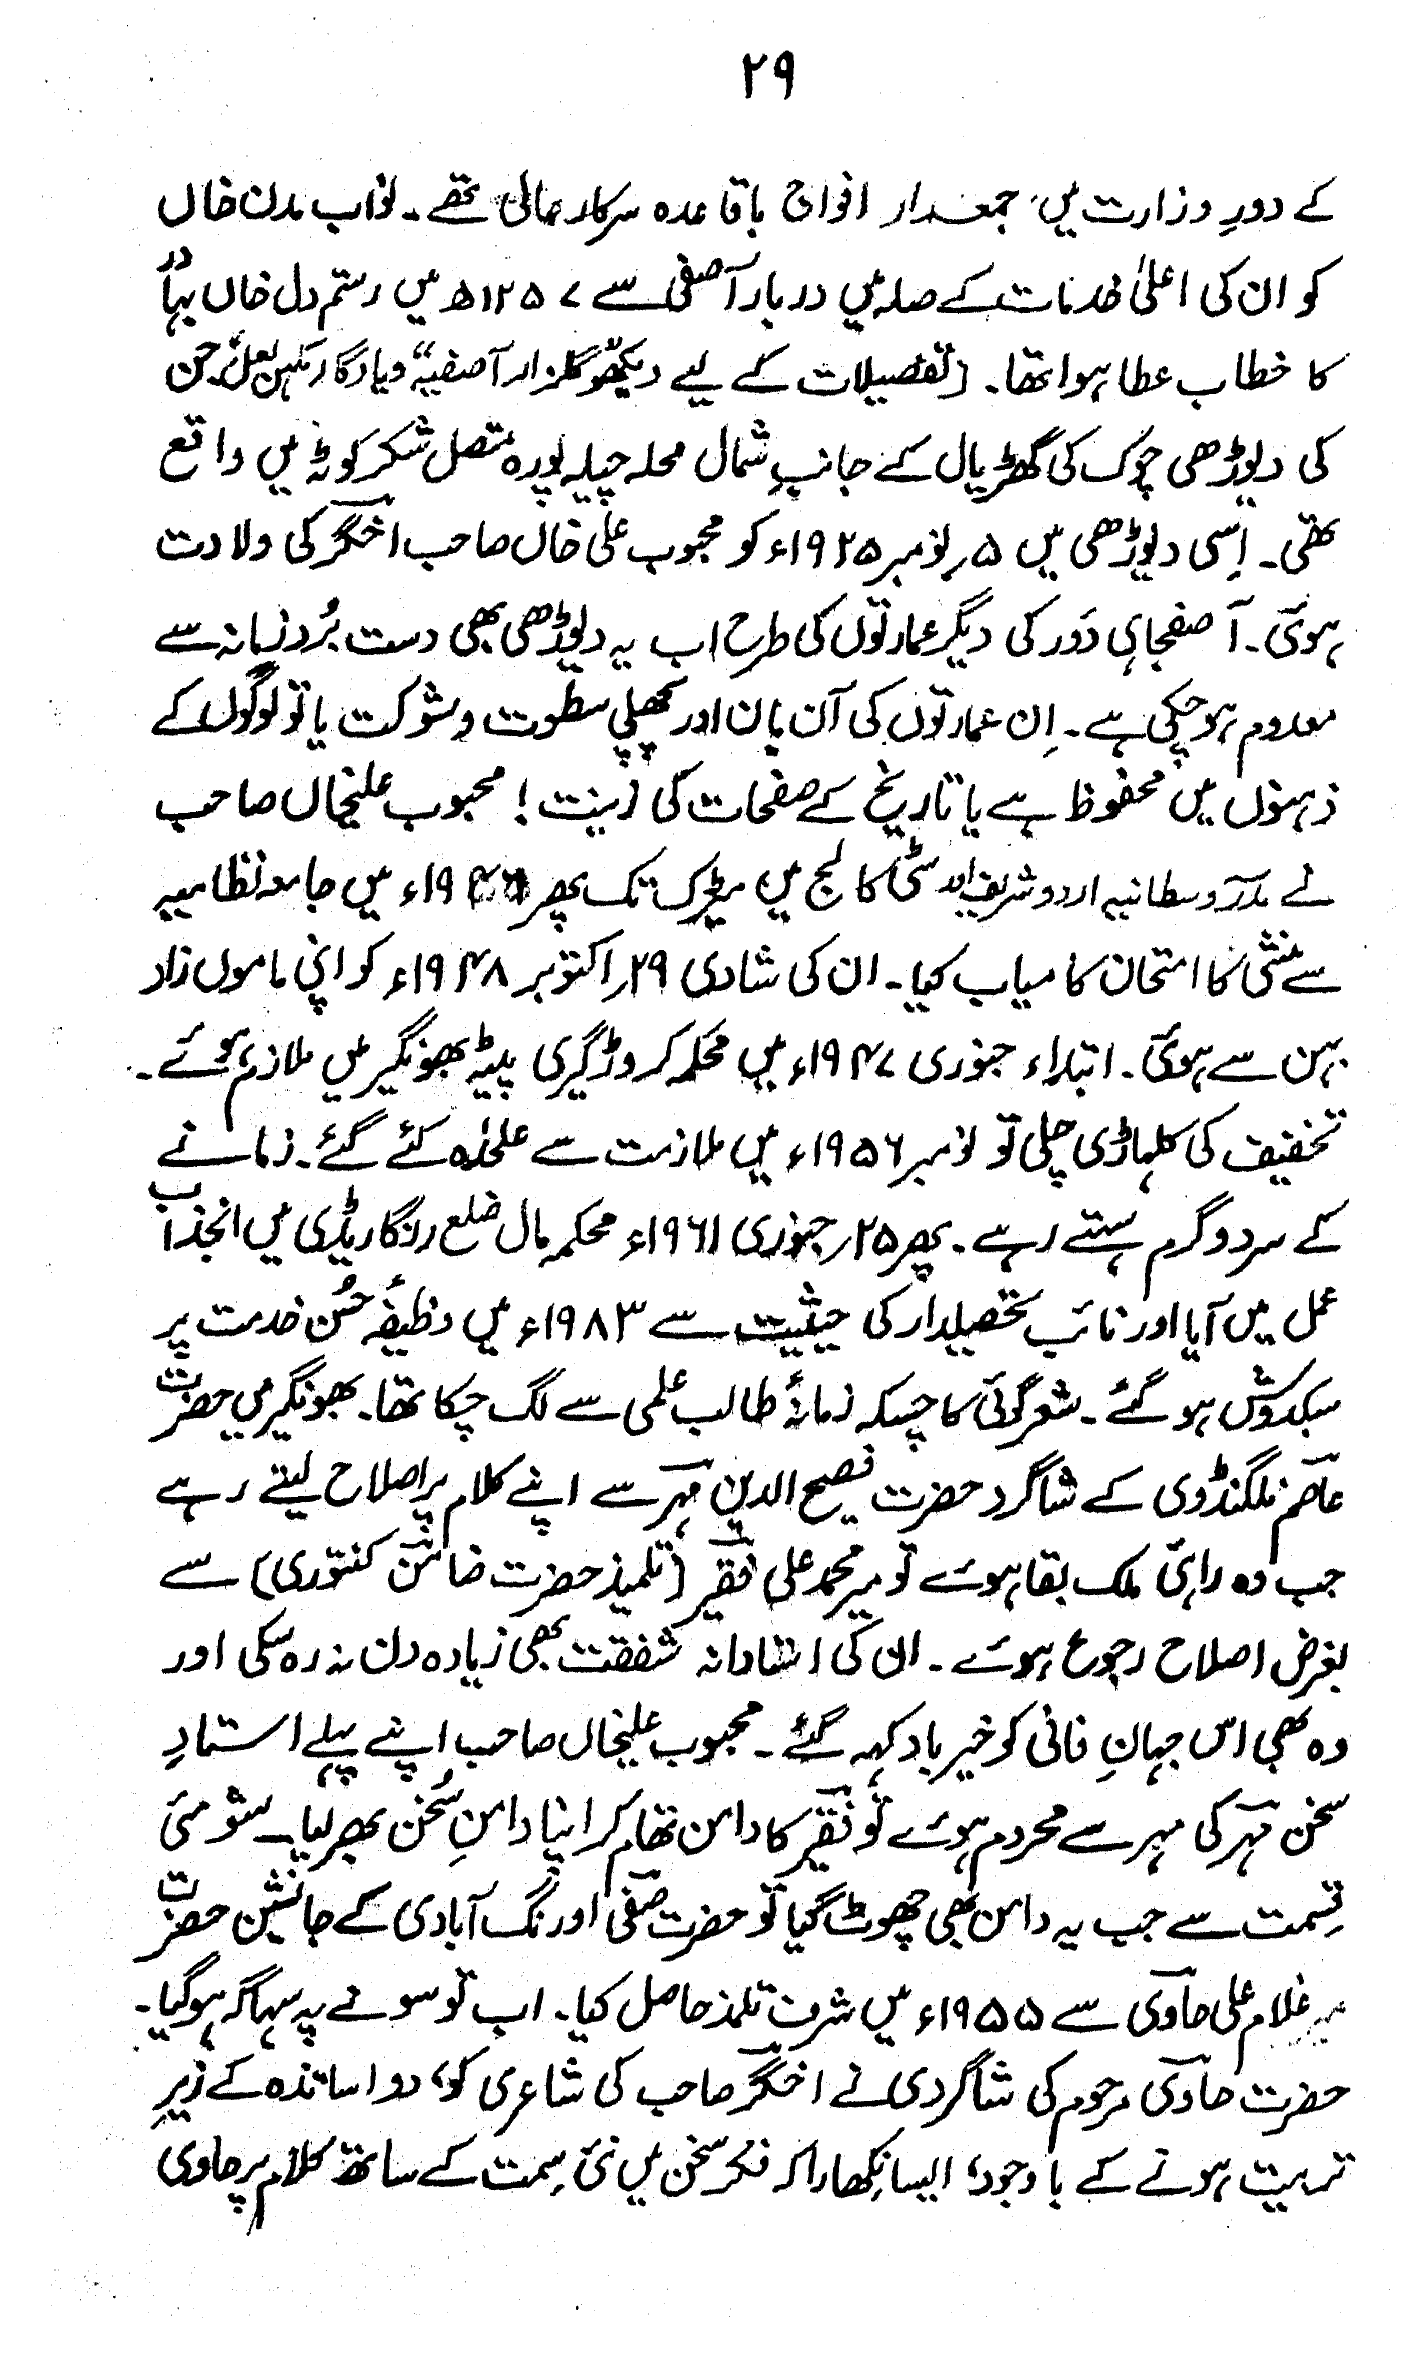 ۲۹
کے دورِ وزارت میں، جمعدار افواج باقاعدہ سرکار عالی تھے۔ نواب بدن خاں
کو ان کی اعلیٰ خدمات کے صلہ میں دربار آصفی سے ۱۲۵۷ھ میں رستم دل خاں بہادر
کا خطاب عطا ہوا تھا۔ (تفصیلات کے لیے دیکھو "گلزار آصفیہ" و یادگار مکھن لعل) جن
کی دیوڑھی چوک کی گھڑیال کے جانبِ شمال محلہ چیلہ پورہ متصل شکر کوٹہ میں واقع
تھی۔ اِسی دیوڑھی میں ۵؍ نومبر ۱۹۲۵ء کو محبوب علی خاں صاحب اخگر کی ولادت
ہوئی۔ آصفجاہی دَور کی دیگر عمارتوں کی طرح اب یہ دیوڑھی بھی دست بُرد زمانہ سے
معدوم ہوچکی ہے۔ اِن عمارتوں کی آن بان اور پچھلی سطوت و شوکت یا تو لوگوں کے
ذہنوں میں محفوظ ہے یا تاریخ کے صفحات کی زینت! محبوب علیخاں صاحب
نے مدرسہ وسطانیہ اردو شریف اور سٹی کالج میں میٹرک تک پھر میں جامعہ نظامیہ
سے منشی کا امتحان کامیاب کیا۔ ان کی شادی ۲۹؍ اکتوبر ۱۹۴۸ء کو اپنی ماموں زاد
بہن سے ہوئی۔ ابتداء جنوری ۱۹۴۷ء میں محکمہ کروڑگیری پیٹہ بھونگیر میں ملازم ہوئے۔
تخفیف کی کلہاڑی چلی تو نومبر ۱۹۵۶ء میں ملازمت سے علٰحدہ کئے گئے۔ زمانے
کے سرد و گرم سہتے رہے۔ پھر ۲۵؍ جنوری ۱۹۶۱ء محکمہ مال ضلع رنگاریڈی میں انجذاب
عمل میں آیا اور نائب تحصیلدار کی حیثیت سے ۱۹۸۳ء میں وظیفۂ حُسن خدمت پر
سبکدوش ہوگئے۔ شعر گوئی کا چسکہ زمانۂ طالب علمی سے لگ چکا تھا۔ بھونگیر میں حضرت
عاصم نلگنڈوی کے شاگرد حضرت فصیح الدین مہر سے اپنے کلام پر اصلاح لیتے رہے
جب وہ راہئ ملک بقا ہوئے تو میر محمد علی فقیر (تلمیذ حضرت ضامن کنتوری) سے
بغرض اصلاح رجوع ہوئے۔ ان کی استادانہ شفقت بھی زیادہ دن نہ رہ سکی اور
وہ بھی اس جہانِ فانی کو خیرباد کہہ گئے۔ محبوب علیخاں صاحب اپنے پہلے استادِ
سخن مہر کی مہر سے محروم ہوئے تو فقیر کا دامن تھام کر اپنا دامنِ سُخن بھر لیا۔ شومئی
قِسمت سے جب یہ دامن بھی چھوٹ گیا تو حضرت صفی اورنگ آبادی کے جانشین حضرت
میر غلام علی حاوی سے ۱۹۵۵ء میں شرفِ تلمذ حاصل کیا۔ اب تو سونے پہ سہاگہ ہوگیا۔
حضرت حاوی مرحوم کی شاگردی نے اخگر صاحب کی شاعری کو، دو اساتذہ کے زیرِ
تربیت ہونے کے باوجود، ایسا نِکھارا کہ فکر سخن میں نئی سِمت کے ساتھ کلام پر حاوی